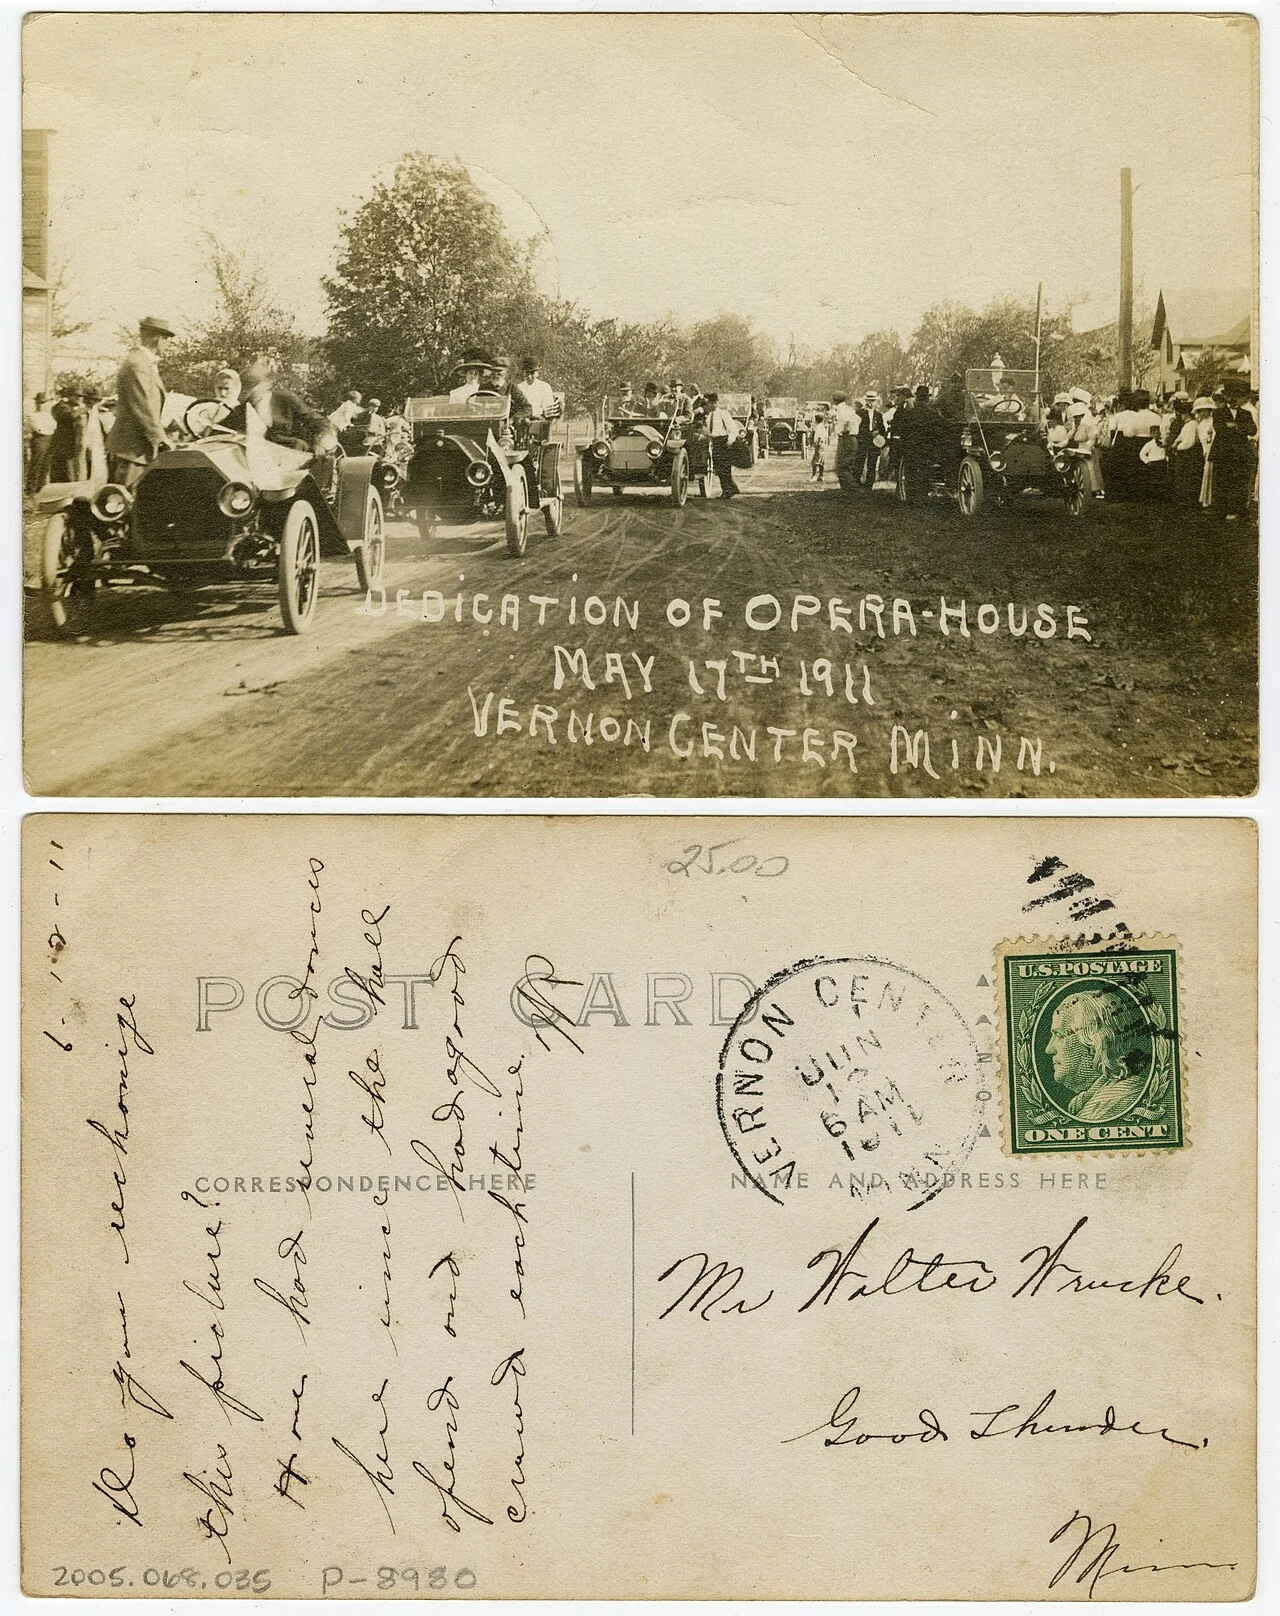 DEDICATION OF OPERA-HOUSE
MAY 17TH 1911
VERNON CENTER MINN.
25.00
POST CARD
CORRESPONDENCE HERE
NAME AND ADDRESS HERE
6-12-11
Do you rechonize
this picture?
Have had several dances
here since the hall
opend and had a good
crowd each time.
VERNON CENTER
JUN
12
6 AM
1911
MINN
U.S. POSTAGE
ONE CENT
Mr Walter Wrucke.
Good Thunder.
Minn
2005.068.035 P-8980